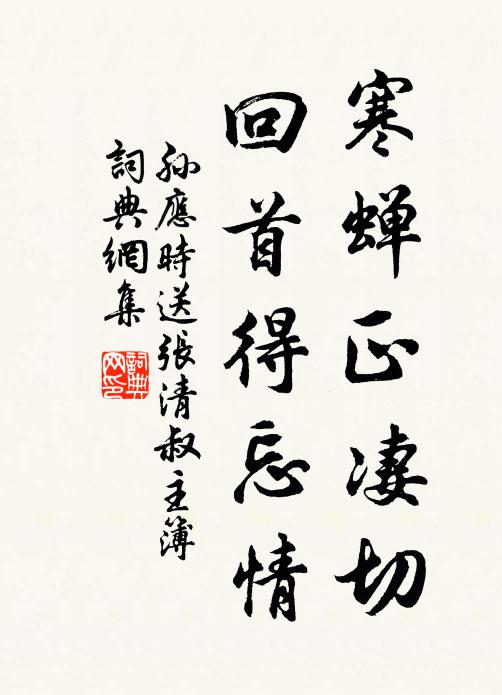 寒蝉正凄切
回首得忘情
孙應時送張清叔主簿
詞典網集
詞典網印